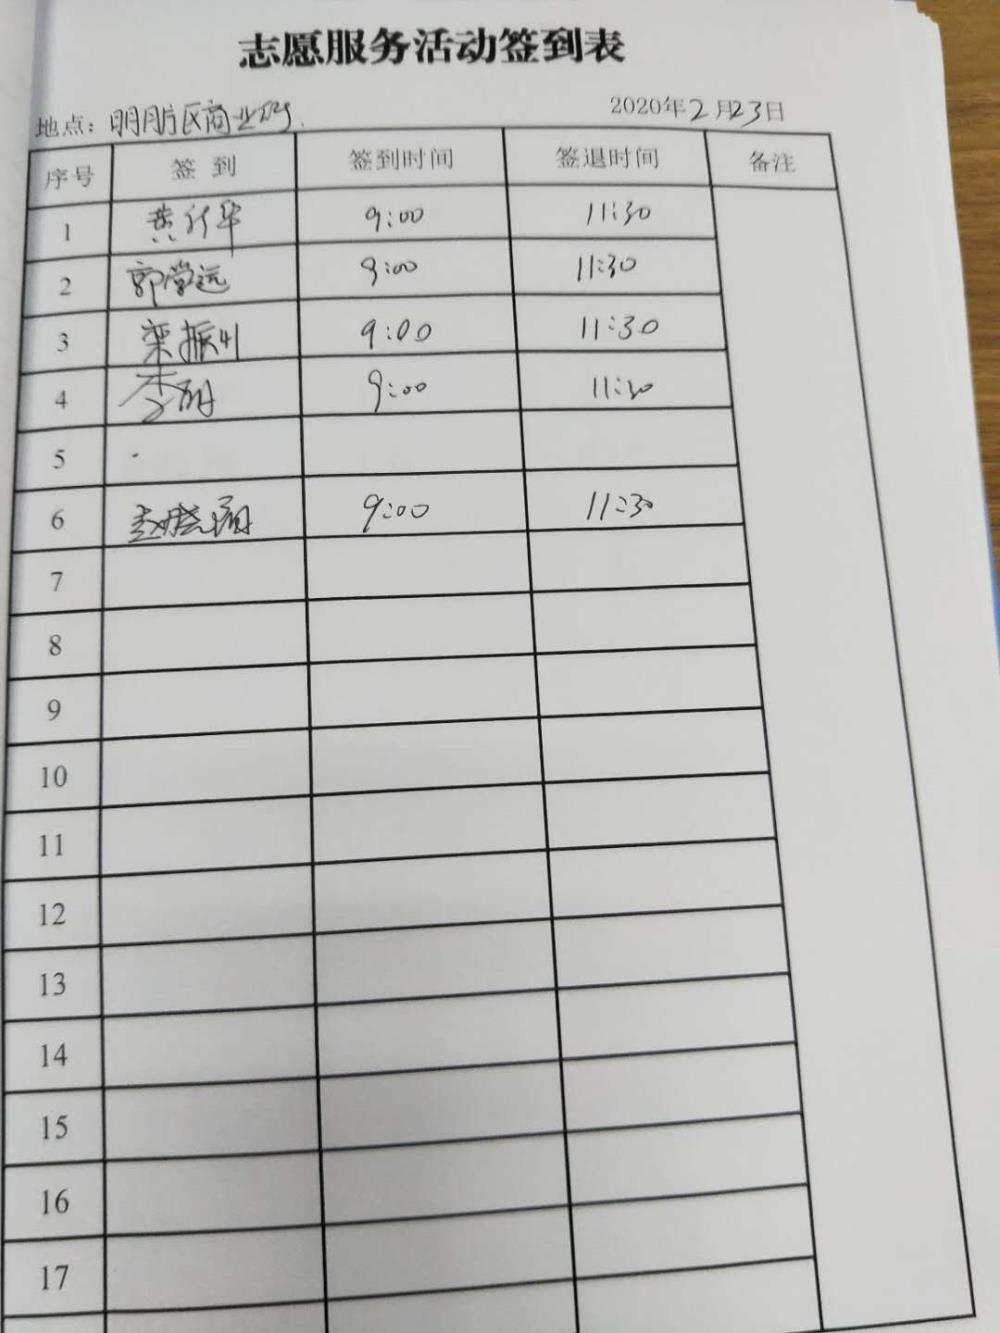 志愿服务活动签到表
地点： 区商业 2020年2月23日
序号 签 到 签到时间 签退时间 备注
1 黄 华 9:00 11:30
2 郭堂远 9:00 11:30
3 栾振 9:00 11:30
4 李 9:00 11:30
5
6 赵晓 9:00 11:30
7
8
9
10
11
12
13
14
15
16
17